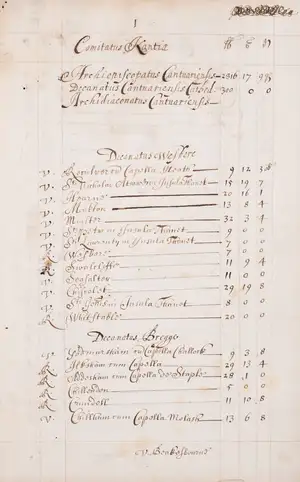 1
Comitatus Kantiæ
Archiepiscopatus Cantuariensis 2816 17 9
Decanatus Cantuariensis Cathed 300 0 0
Archidiaconatus Cantuariensis
Decanatus Westbere
v. cu Capella 9 12
v. St Nicholas Insula Thanet 15 19 7
v. 20 16 1
v. Munkton 13 8 4
v. Minster 32 3 4
St Peter in Insula Tannet 9 0 0
St Laurenty in Insula Tannet 7 0 0
R Westbere 7 0 0
R 11 9 4
v. Seasalter 11 0 0
v. Chislet 29 19 8
v. St Johns in Insula Tannet 8 0 0
R Whitstable 20 0 0
Decanatus Bregge
v. Godmersham cu Capella Challock 9 3 8
R cum Capella 29 13 4
R Adesham cum Capella de Staple 28 1 0
R Chillenden 5 0 0
R Crundell 11 10 8
v. Chilham cum Capella Molash 13 6 8
v. Beakesbourne